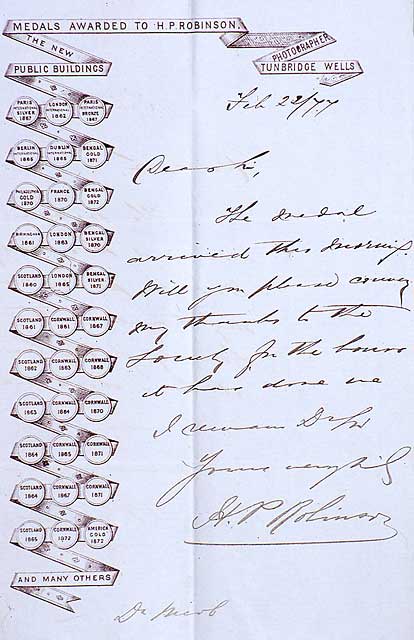 MEDALS AWARDED TO H.P. ROBINSON.
PHOTOGRAPHER
TUNBRIDGE WELLS
THE NEW
PUBLIC BUILDINGS
PARIS INTERNATIONAL SILVER 1867 LONDON INTERNATIONAL 1862 PARIS INTERNATIONAL BRONZE 1867
BERLIN INTERNATIONAL 1865 DUBLIN INTERNATIONAL 1865 BENGAL GOLD 1871
PHILADELPHIA GOLD 1870 FRANCE 1870 BENGAL GOLD 1872
BIRMINGHAM 1861 LONDON 1863 BENGAL SILVER 1870
SCOTLAND 1860 LONDON 1865 BENGAL SILVER 1871
SCOTLAND 1861 CORNWALL 1861 CORNWALL 1867
SCOTLAND 1862 CORNWALL 1863 CORNWALL 1868
SCOTLAND 1863 CORNWALL 1864 CORNWALL 1870
SCOTLAND 1864 CORNWALL 1865 CORNWALL 1871
SCOTLAND 1864 CORNWALL 1867 CORNWALL 1871
SCOTLAND 1865 CORNWALL 1872 AMERICA GOLD 1872
AND MANY OTHERS
Feb 23/77
Dear Sir,
The medal
arrived this morning.
Will you please convey
my thanks to the
Society for the honor
it has done me
I remain Dr Sir
Yours very
H. P. Robinson
Dr